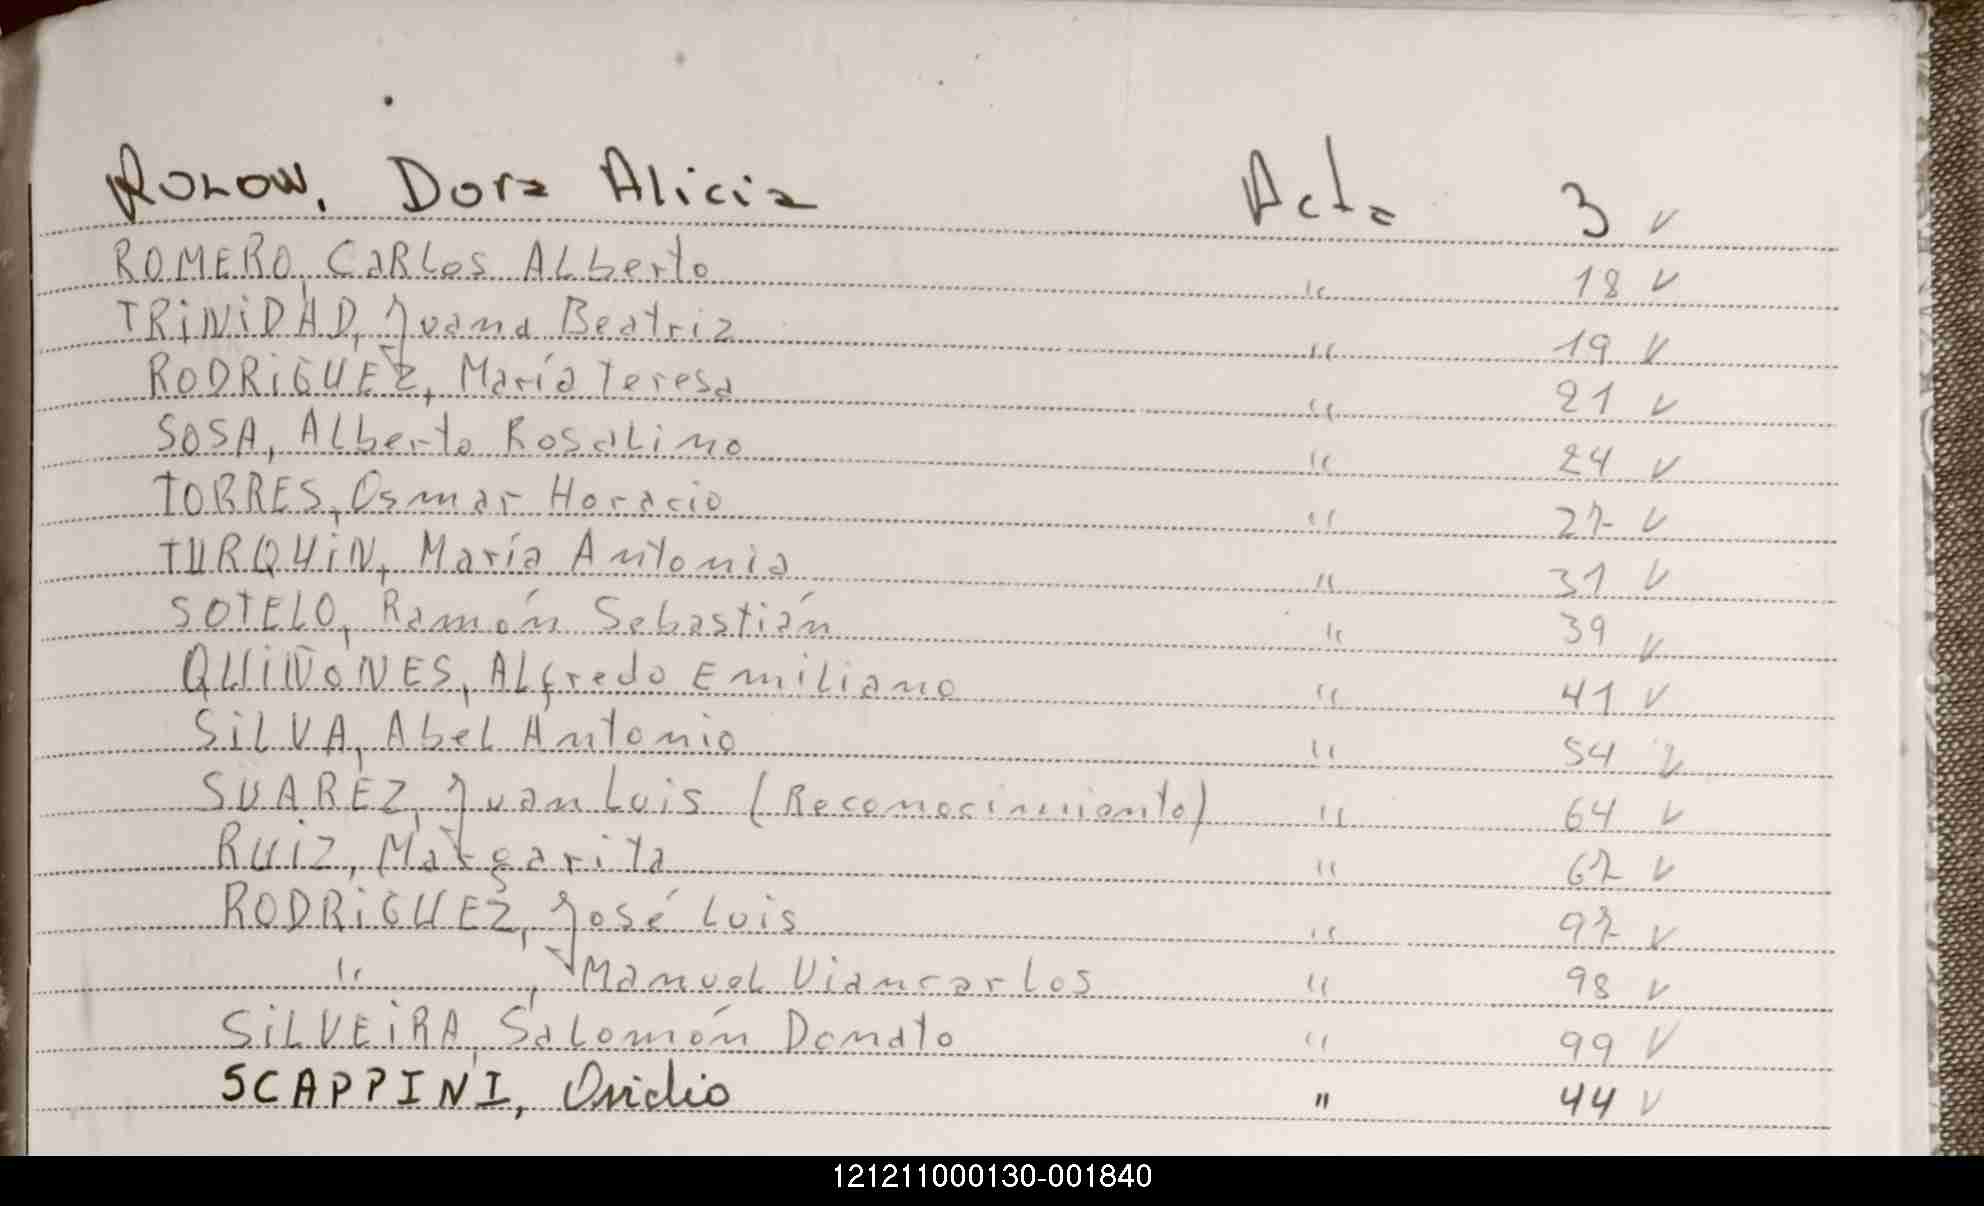 ROLOW, Dora Alicia Acta 3 v
ROMERO, CaRLos ALberto " 18 v
TRiNiDAD, Juana Beatriz " 19 v
RODRiGUEZ, María Teresa " 21 v
SOSA, ALberto RosaLino " 24 v
TORRES, Osmar Horacio " 27 v
TURQUiN, María Antonia " 31 v
SOTELO, Ramón Sebastián " 39 v
QUiÑONES, ALfredo EmiLiano " 41 v
SiLVA, AbeL Antonio " 54 v
SUAREZ, Juan Luis (Reconocimiento) " 64 v
RUiZ, Margarita " 67 v
RODRiGUEZ, José Luis " 97 v
" , ManueL Viancarlos " 98 v
SiLVEiRA, SaLomón Donato " 99 v
SCAPPINI, Ovidio " 44 v
121211000130-001840